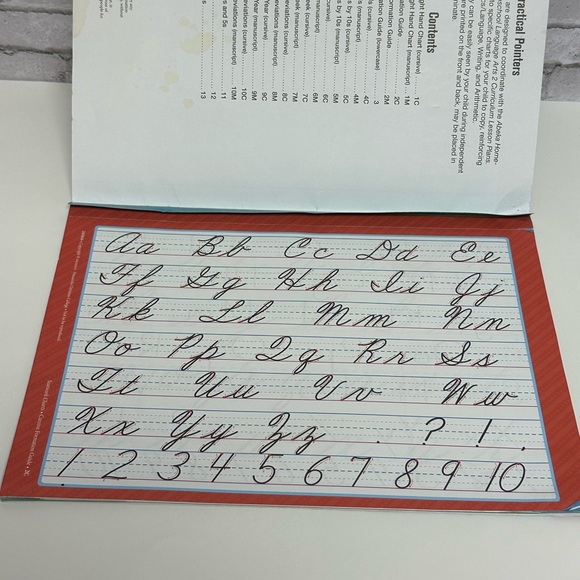 ractical Pointers
are designed to coordinate with the Abeka Home-
school Language Arts 2 Curriculum Lesson Plans.
to specific charts for your child to copy, reinforcing
cs/Language, Writing, and Arithmetic.
y can be easily seen by your child during independent
are printed on the front and back, may be placed in
minate.
Contents
ght Hand Chart (cursive) 1C
ght Hand Chart (manuscript) 1M
mation Guide 2C
ormation Guide 2M
mation Guide (lowercase) 3
(cursive) 4C
(manuscript) 4M
s by 10s (cursive) 5C
s by 10s (manuscript) 5M
cursive) 6C
manuscript) 6M
eek (cursive) 7C
eek (manuscript) 7M
eviations (cursive) 8C
eviations (manuscript) 8M
Year (cursive) 9C
Year (manuscript) 9M
eviations (cursive) 10C
eviations (manuscript) 10M
11
12
13
Aa Bb Cc Dd Ee
Ff Gg Hh Ii Jj
Kk Ll Mm Nn
Oo Pp Qq Rr Ss
Tt Uu Vv Ww
Xx Yy Zz . ? ! ,
1 2 3 4 5 6 7 8 9 10
Cursive Formation Guide • 2C